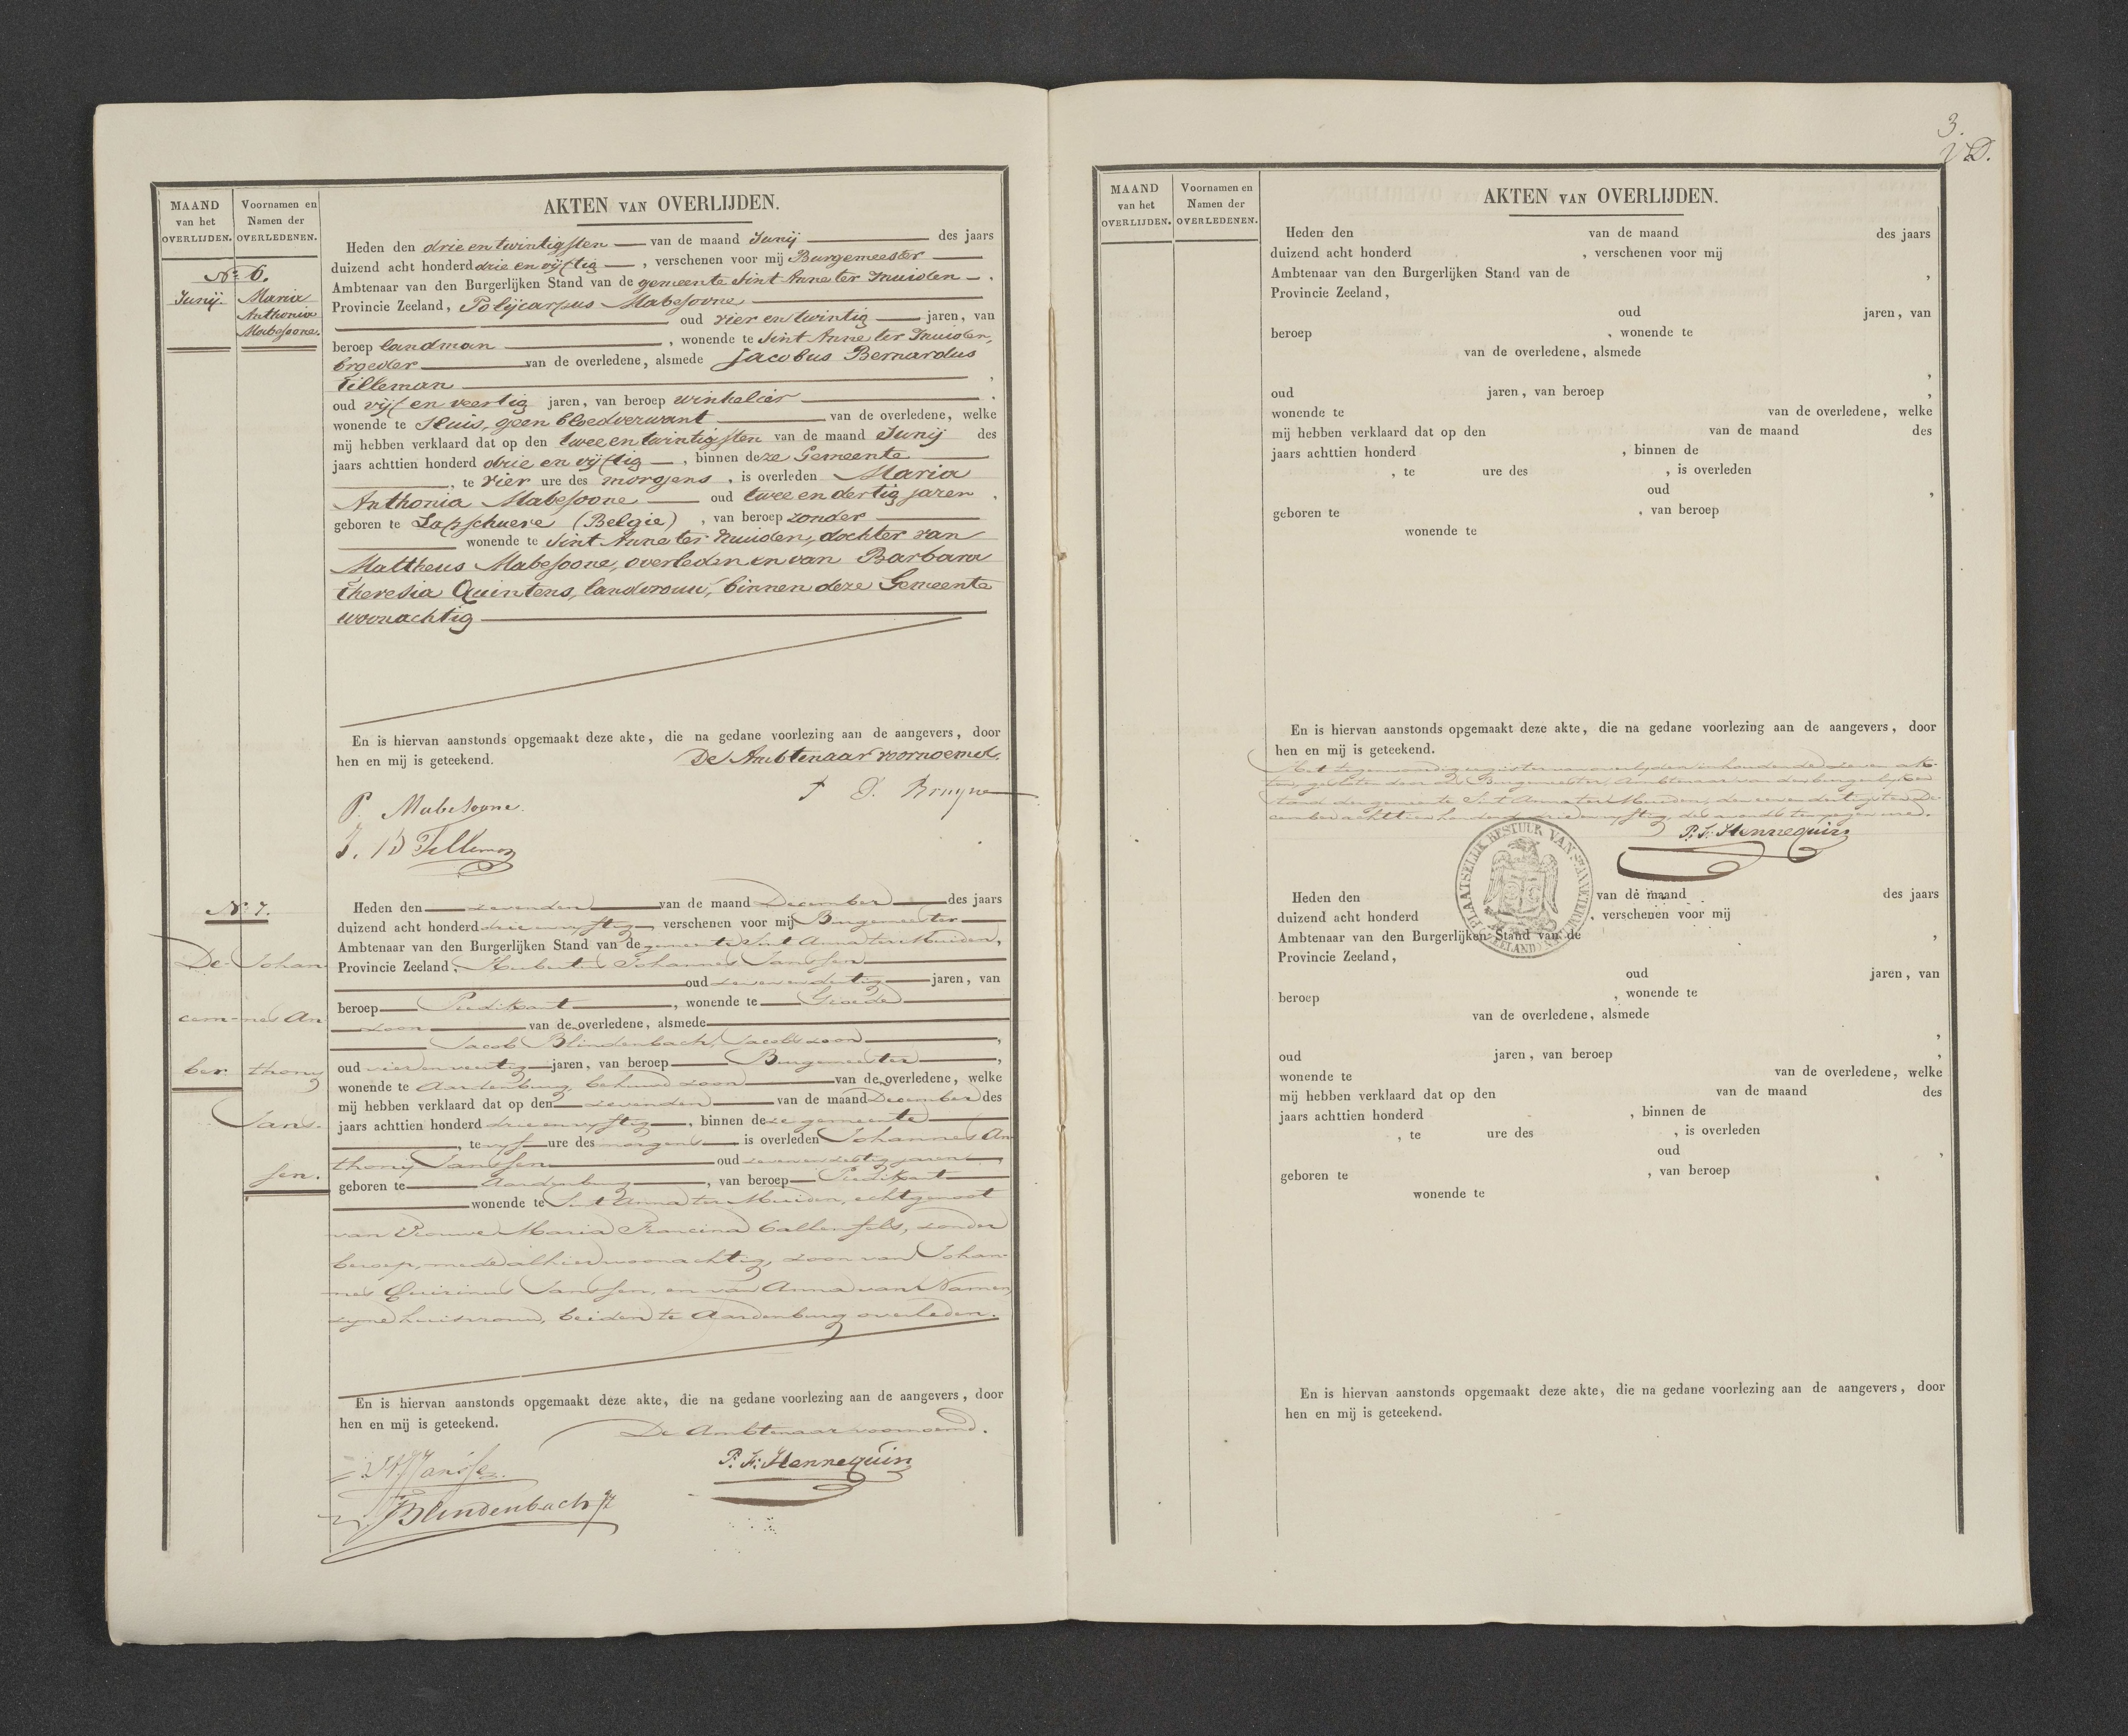 AKTEN VAN OVERLIJDEN.
MAAND van het OVERLIJDEN.
Voornamen en Namen der OVERLEDENEN.
No 6.
Junij
Maria
Anthonia
Mabesoone.
Heden den drie en twintigsten van de maand Junij des jaars
duizend acht honderd drie en vijftig, verschenen voor mij Burgemeester
Ambtenaar van den Burgerlijken Stand van de gemeente Sint Anne ter Muiden.
Provincie Zeeland, Polijcarpus Mabesoone
oud vier en twintig jaren, van
beroep landman, wonende te Sint Anne ter Muiden,
broeder van de overledene, alsmede Jacobus Bernardus
Tilleman,
oud vijf en veertig jaren, van beroep winkelier
wonende te Sluis, geen bloedverwant van de overledene, welke
mij hebben verklaard dat op den twee en twintigsten van de maand Junij des
jaars achttien honderd drie en vijftig, binnen deze Gemeente
, te vier ure des morgens, is overleden Maria
Anthonia Mabesoone oud twee en dertig jaren,
geboren te Lapschuere (Belgie), van beroep zonder
wonende te Sint Anne ter Muiden, dochter van
Mattheus Mabesoone, overleden en van Barbara
Theresia Quintens, landvrouw, binnen deze Gemeente
woonachtig
En is hiervan aanstonds opgemaakt deze akte, die na gedane voorlezing aan de aangevers, door
hen en mij is geteekend. De Ambtenaar voornoemd.
P. Mabesoone.
J. B Tilleman
Bruyne
No 7.
De-
cem-
ber.
Johan
nes An
thony
Jans-
sen.
Heden den zevenden van de maand December des jaars
duizend acht honderd drie en vyftig verschenen voor mij Burgemeester
Ambtenaar van den Burgerlijken Stand van de gemeente Sint Anna ter Muiden,
Provincie Zeeland, Hubertus Johannes Janssen
oud zeven en dertig jaren, van
beroep Predikant, wonende te Groede
zoon van de overledene, alsmede
Jacob Blindenbach, Jacobszoon,
oud vier en veertig jaren, van beroep Burgemeester,
wonende te Aardenburg, behuwd zoon van de overledene, welke
mij hebben verklaard dat op den zevenden van de maand December des
jaars achttien honderd drie en vyftig, binnen deze gemeente
, te vyf ure des morgens is overleden Johannes An
thony Janssen oud zeven en zestig jaren,
geboren te Aardenburg, van beroep Predikant
wonende te Sint Anna ter Muiden, echtgenoot
van Vrouwe Maria Francina Callenfels, zonder
beroep, mede alhier woonachtig, zoon van Johan-
nes Quirinus Janssen, en van Anna van Namen
zyne huisvrouw, beiden te Aardenburg overleden.
En is hiervan aanstonds opgemaakt deze akte, die na gedane voorlezing aan de aangevers, door
hen en mij is geteekend. De Ambtenaar voornoemd.
HJJanssen.
P. F. Hennequin
JBlindenbach Jz
3.
VD.
AKTEN VAN OVERLIJDEN.
MAAND van het OVERLIJDEN.
Voornamen en Namen der OVERLEDENEN.
Heden den van de maand des jaars
duizend acht honderd , verschenen voor mij
Ambtenaar van den Burgerlijken Stand van de ,
Provincie Zeeland,
oud jaren, van
beroep , wonende te
van de overledene, alsmede
,
oud jaren, van beroep ,
wonende te van de overledene, welke
mij hebben verklaard dat op den van de maand des
jaars achttien honderd , binnen de
, te ure des , is overleden
oud ,
geboren te , van beroep
wonende te
En is hiervan aanstonds opgemaakt deze akte, die na gedane voorlezing aan de aangevers, door
hen en mij is geteekend.
Het tegenwoordig register van overlyden inhoudende zeven ak-
ten, gesloten door den Burgemeester, Ambtenaar van den burgerlyken
stand der gemeente Sint Anna ter Muiden, den een en dertigsten De-
cember achttien honderd drie en vyftig, des avonds ten negen ure.
P. F. Hennequin
PLAATSELIJK BESTUUR VAN ST ANNETERMUIDEN (ZEELAND)
Heden den van de maand des jaars
duizend acht honderd , verschenen voor mij
Ambtenaar van den Burgerlijken Stand van de ,
Provincie Zeeland,
oud jaren, van
beroep , wonende te
van de overledene, alsmede
,
oud jaren, van beroep ,
wonende te van de overledene, welke
mij hebben verklaard dat op den van de maand des
jaars achttien honderd , binnen de
, te ure des , is overleden
oud ,
geboren te , van beroep
wonende te
En is hiervan aanstonds opgemaakt deze akte, die na gedane voorlezing aan de aangevers, door
hen en mij is geteekend.